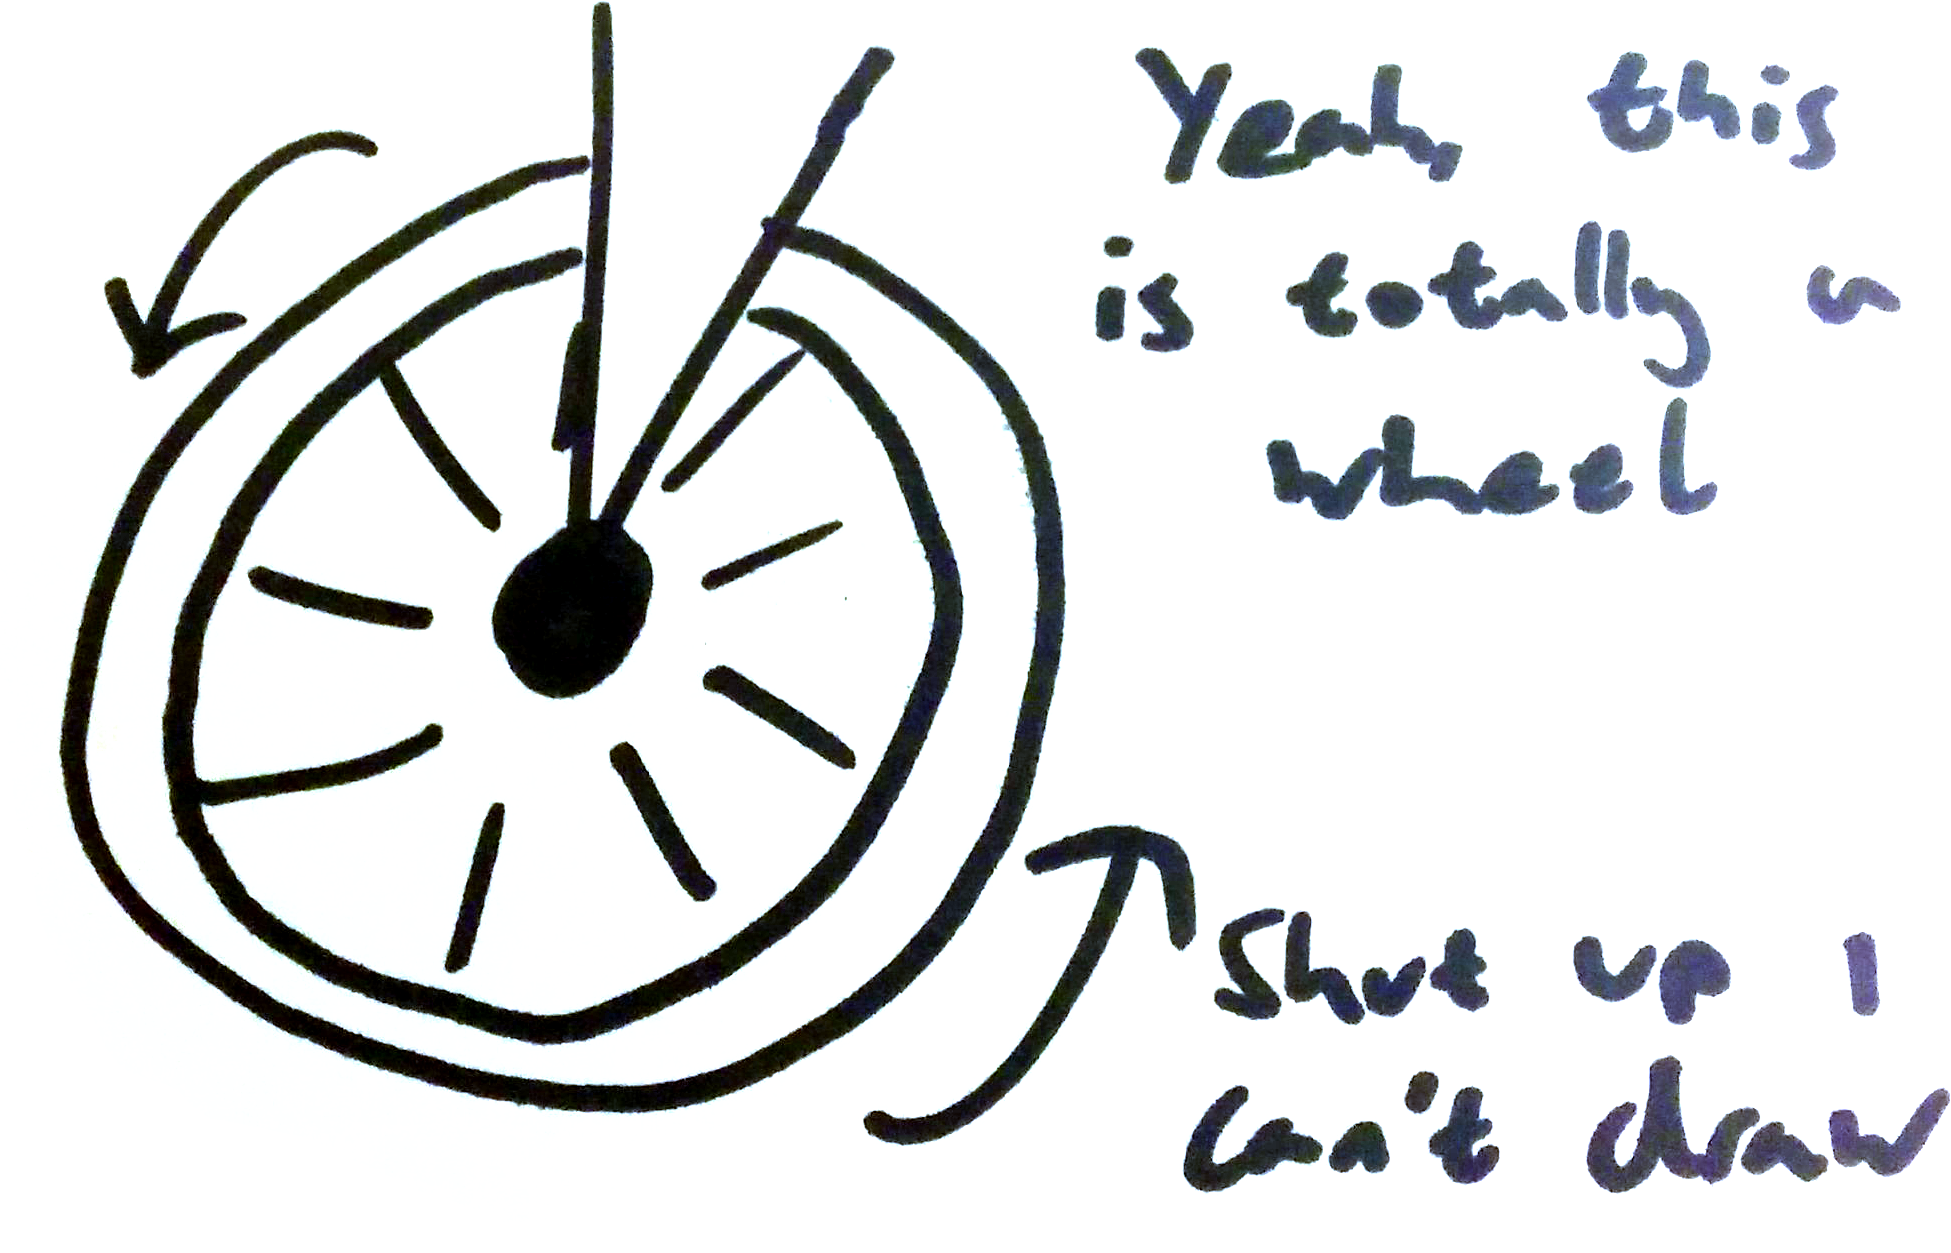 Yeah, this
is totally a
wheel
Shut up I
can't draw